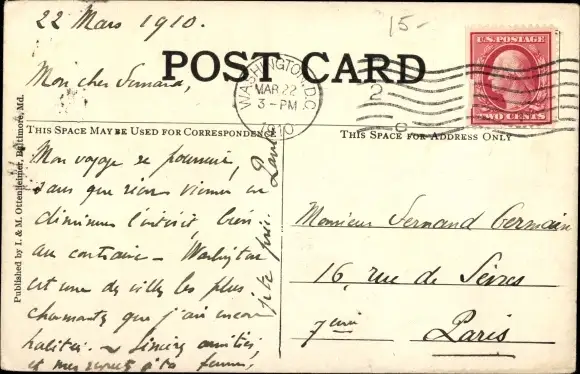 22 Mars 1910.
15-
POST CARD
U.S. POSTAGE
TWO CENTS
WASHINGTON, D.C.
MAR 22
3-PM
1910
2
Mon cher Fernand,
THIS SPACE MAY BE USED FOR CORRESPONDENCE
THIS SPACE FOR ADDRESS ONLY
Published by I. & M. Ottenheimer, Baltimore, Md.
Mon voyage se poursuit,
sans que rien vienne en
diminuer l'intérêt, bien
au contraire - Washington
est une des villes les plus
charmantes que j'aie encore
habitées. - Sincères amitiés,
et mes respects à ta femme,
Monsieur Fernand Germain
16, rue de Sèvres
7ème
Paris